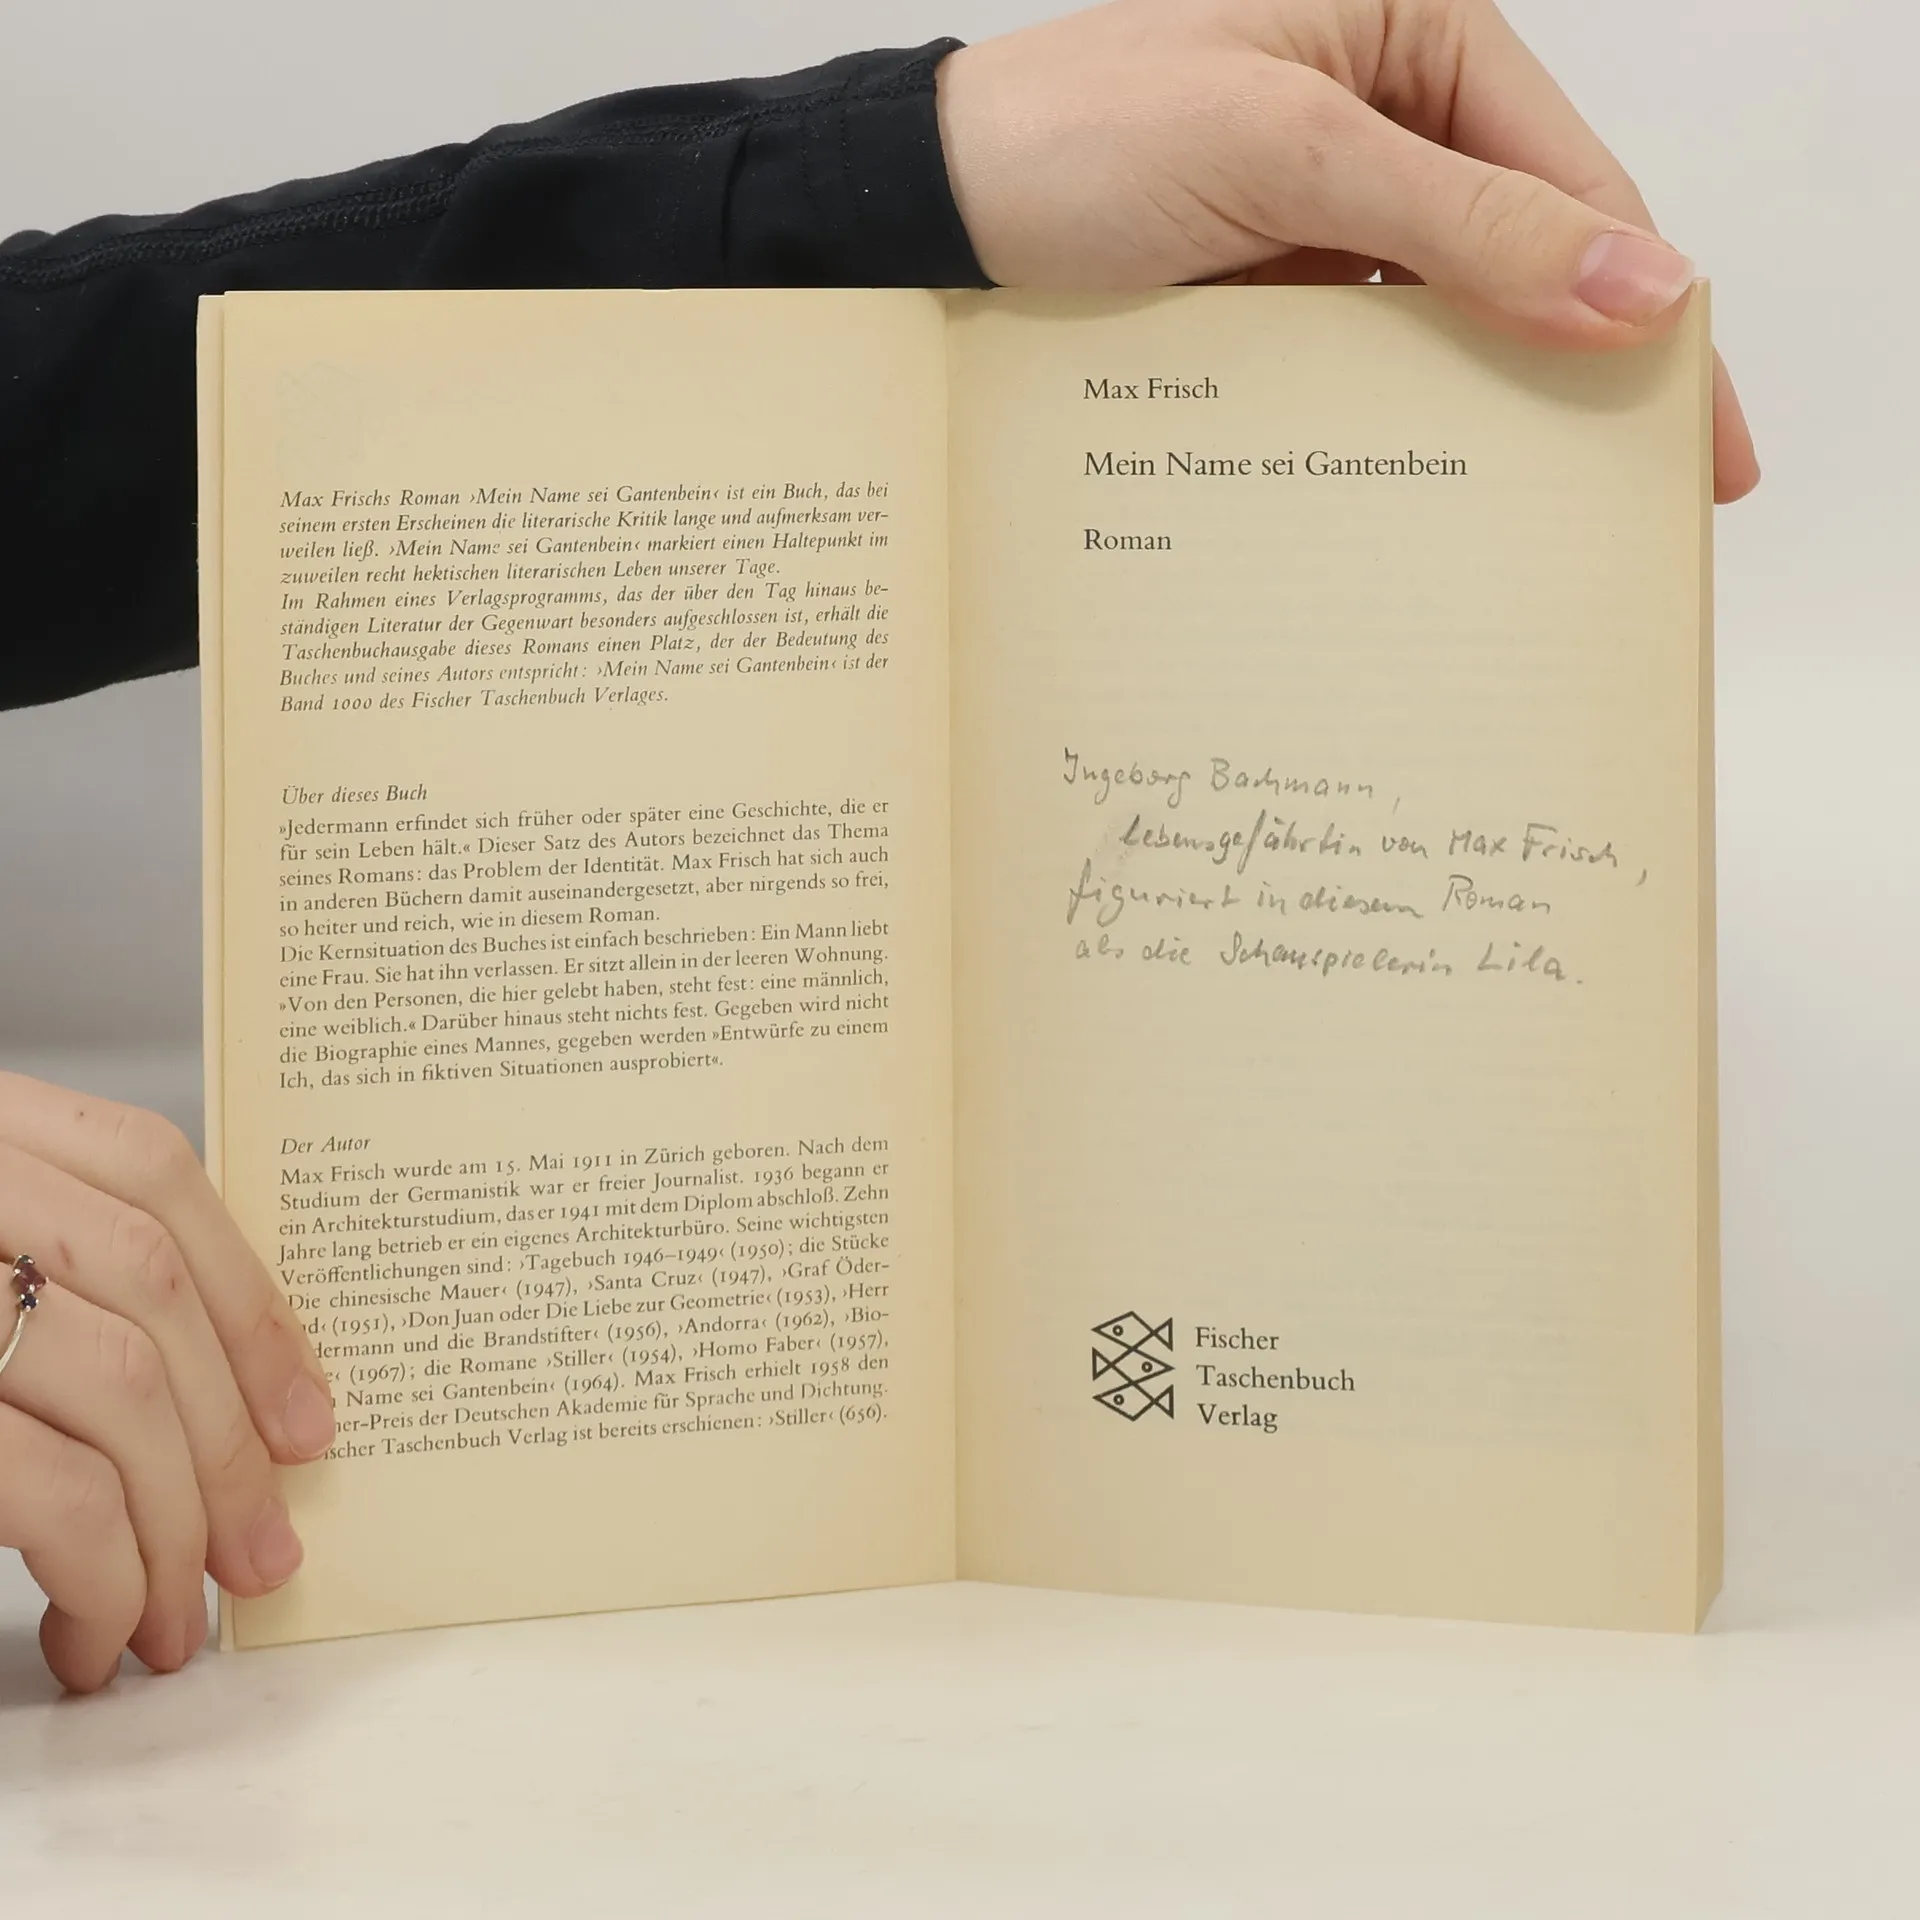 Max Frischs Roman ›Mein Name sei Gantenbein‹ ist ein Buch, das bei
seinem ersten Erscheinen die literarische Kritik lange und aufmerksam ver-
weilen ließ. ›Mein Name sei Gantenbein‹ markiert einen Haltepunkt im
zuweilen recht hektischen literarischen Leben unserer Tage.
Im Rahmen eines Verlagsprogramms, das der über den Tag hinaus be-
ständigen Literatur der Gegenwart besonders aufgeschlossen ist, erhält die
Taschenbuchausgabe dieses Romans einen Platz, der der Bedeutung des
Buches und seines Autors entspricht: ›Mein Name sei Gantenbein‹ ist der
Band 1000 des Fischer Taschenbuch Verlages.
Über dieses Buch
»Jedermann erfindet sich früher oder später eine Geschichte, die er
für sein Leben hält.« Dieser Satz des Autors bezeichnet das Thema
seines Romans: das Problem der Identität. Max Frisch hat sich auch
in anderen Büchern damit auseinandergesetzt, aber nirgends so frei,
so heiter und reich, wie in diesem Roman.
Die Kernsituation des Buches ist einfach beschrieben: Ein Mann liebt
eine Frau. Sie hat ihn verlassen. Er sitzt allein in der leeren Wohnung.
»Von den Personen, die hier gelebt haben, steht fest: eine männlich,
eine weiblich.« Darüber hinaus steht nichts fest. Gegeben wird nicht
die Biographie eines Mannes, gegeben werden »Entwürfe zu einem
Ich, das sich in fiktiven Situationen ausprobiert«.
Der Autor
Max Frisch wurde am 15. Mai 1911 in Zürich geboren. Nach dem
Studium der Germanistik war er freier Journalist. 1936 begann er
ein Architekturstudium, das er 1941 mit dem Diplom abschloß. Zehn
Jahre lang betrieb er ein eigenes Architekturbüro. Seine wichtigsten
Veröffentlichungen sind: ›Tagebuch 1946–1949‹ (1950); die Stücke
Die chinesische Mauer‹ (1947), ›Santa Cruz‹ (1947), ›Graf Öder-
d‹ (1951), ›Don Juan oder Die Liebe zur Geometrie‹ (1953), ›Herr
dermann und die Brandstifter‹ (1956), ›Andorra‹ (1962), ›Bio-
e‹ (1967); die Romane ›Stiller‹ (1954), ›Homo Faber‹ (1957),
Name sei Gantenbein‹ (1964). Max Frisch erhielt 1958 den
ner-Preis der Deutschen Akademie für Sprache und Dichtung.
ischer Taschenbuch Verlag ist bereits erschienen: ›Stiller‹ (656).
Max Frisch
Mein Name sei Gantenbein
Roman
Ingeborg Bachmann,
Lebensgefährtin von Max Frisch,
figuriert in diesem Roman
als die Schauspielerin Lila.
Fischer
Taschenbuch
Verlag